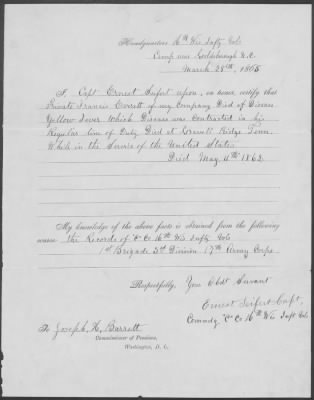 Headquarters 16th Wis Infty Vols
Camp near Goldsborough N.C.
March 28th, 1865
I, Capt Ernest Seifert upon, on honor, certify that
Private Francis Everett of my Company Died of Disease
Yellow Fever. Which Disease was Contracted in his
Regular line of Duty Died at Ridge Tenn.
While in the Service of the United States
Died May 11th 186
My knowledge of the above facts is obtained from the following
source the Records of Co 16th Wis Infty Vols
1st Brigade 3d Division 17th Army Corps
Respectfully, Your Obdt Servant
Ernest Seifert Capt,
Comndg Co 16th Wis Inft Vol
To Joseph H. Barrett
Commissioner of Pensions,
Washington, D. C.